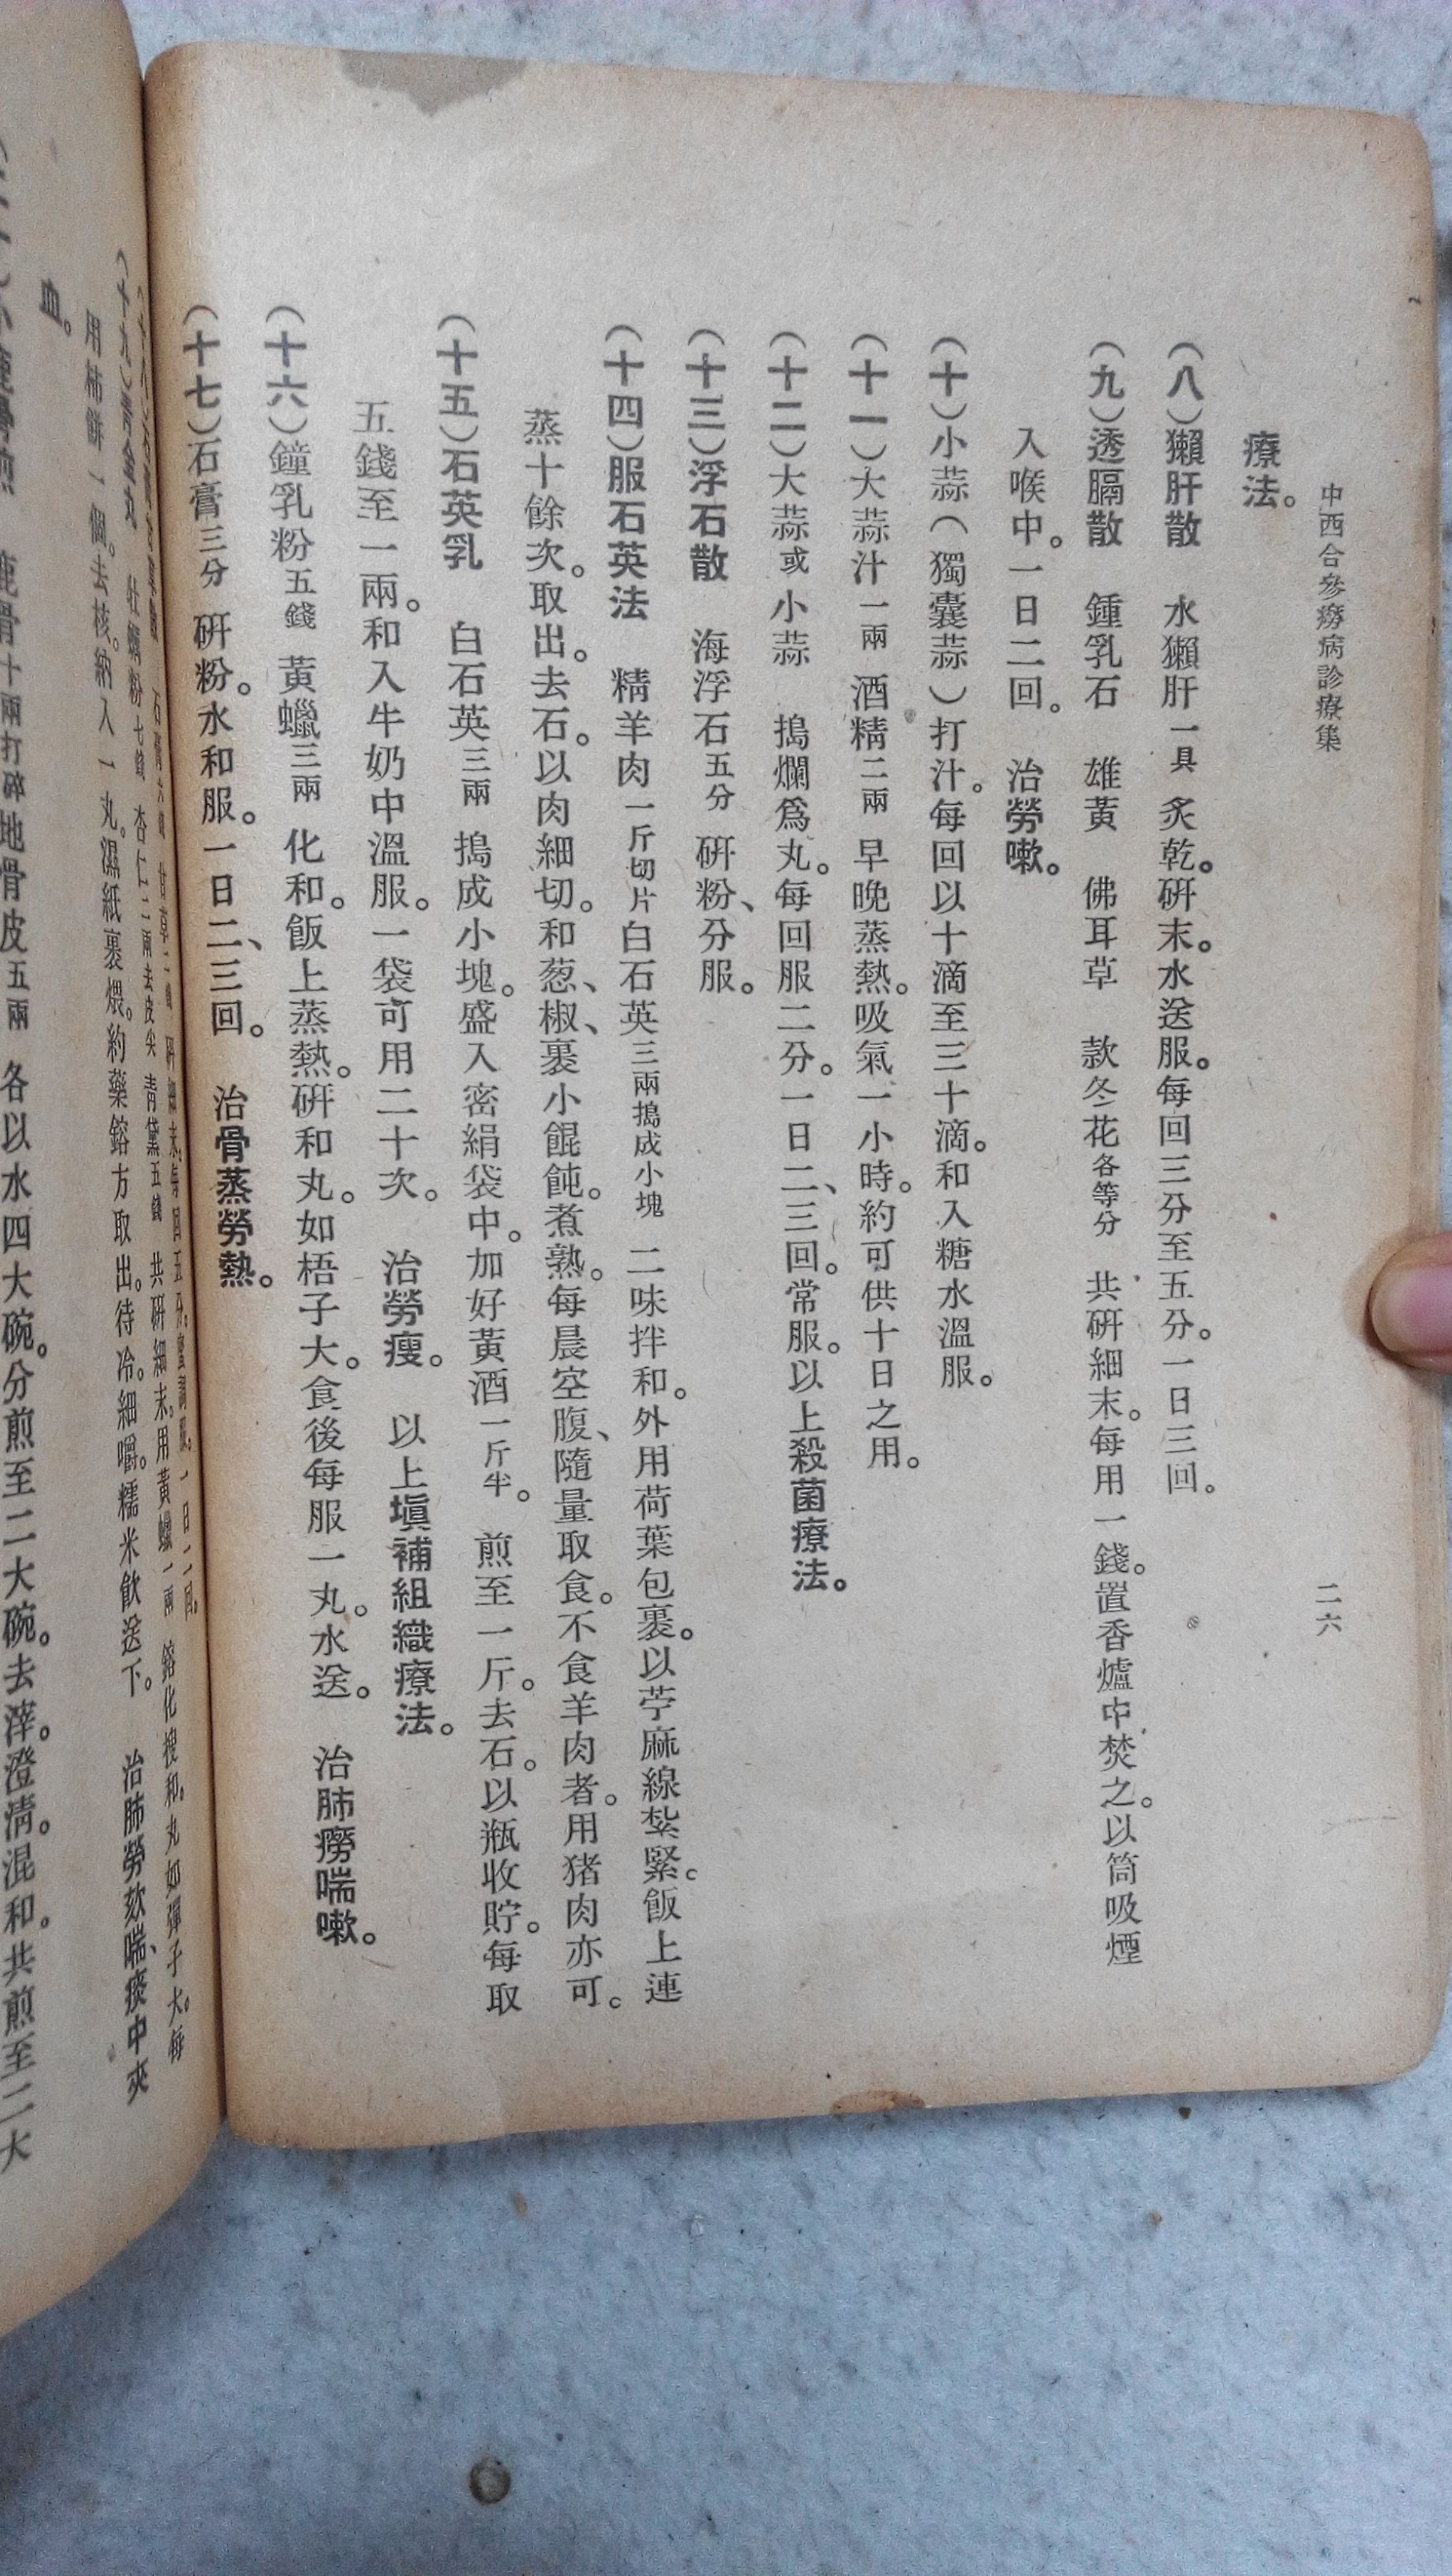 中西合參癆病診療集
二六
療法。
(八)獺肝散 水獺肝一具 炙乾。硏末。水送服。每回三分至五分。一日三回。
(九)透膈散 鍾乳石 雄黃 佛耳草 款冬花各等分 共硏細末。每用一錢。置香爐中焚之。以筒吸煙
入喉中。一日二回。 治勞嗽。
(十)小蒜(獨囊蒜)打汁。每回以十滴至三十滴。和入糖水溫服。
(十一)大蒜汁一兩 酒精二兩 早晚蒸熱。吸氣一小時。約可供十日之用。
(十二)大蒜或小蒜 搗爛爲丸。每回服二分。一日二、三回。常服。以上殺菌療法。
(十三)浮石散 海浮石五分 硏粉、分服。
(十四)服石英法 精羊肉一斤切片 白石英三兩搗成小塊 二味拌和。外用荷葉包裹。以苧麻線紮緊。飯上連
蒸十餘次。取出。去石。以肉細切。和葱、椒、裹小餛飩。煮熟。每晨空腹、隨量取食。不食羊肉者。用猪肉亦可。
(十五)石英乳 白石英三兩 搗成小塊。盛入密絹袋中。加好黃酒一斤半。 煎至一斤。去石。以瓶收貯。每取
五錢至一兩。和入牛奶中溫服。一袋可用二十次。 治勞瘦。 以上塡補組織療法。
(十六)鐘乳粉五錢 黃蠟三兩 化和。飯上蒸熱。硏和丸。如梧子大。食後每服一丸。水送。 治肺癆喘嗽。
(十七)石膏三分 硏粉。水和服。一日二、三回。 治骨蒸勞熱。
石膏六錢 甘草二錢 硏細末。每回五分。蜜調服。一日二回。
(十九)青金丸 牡蠣粉七錢 杏仁二兩去皮尖 青黛五錢 共硏細末。用黃蠟一兩 鎔化搜和。丸如彈子大。每
用柿餅一個。去核。納入一丸。濕紙裹煨。約藥鎔方取出。待冷。細嚼。糯米飮送下。 治肺勞欬喘、痰中夾
血。
鹿骨十兩打碎 地骨皮五兩 各以水四大碗。分煎至二大碗。去滓。澄淸。混和。共煎至二大